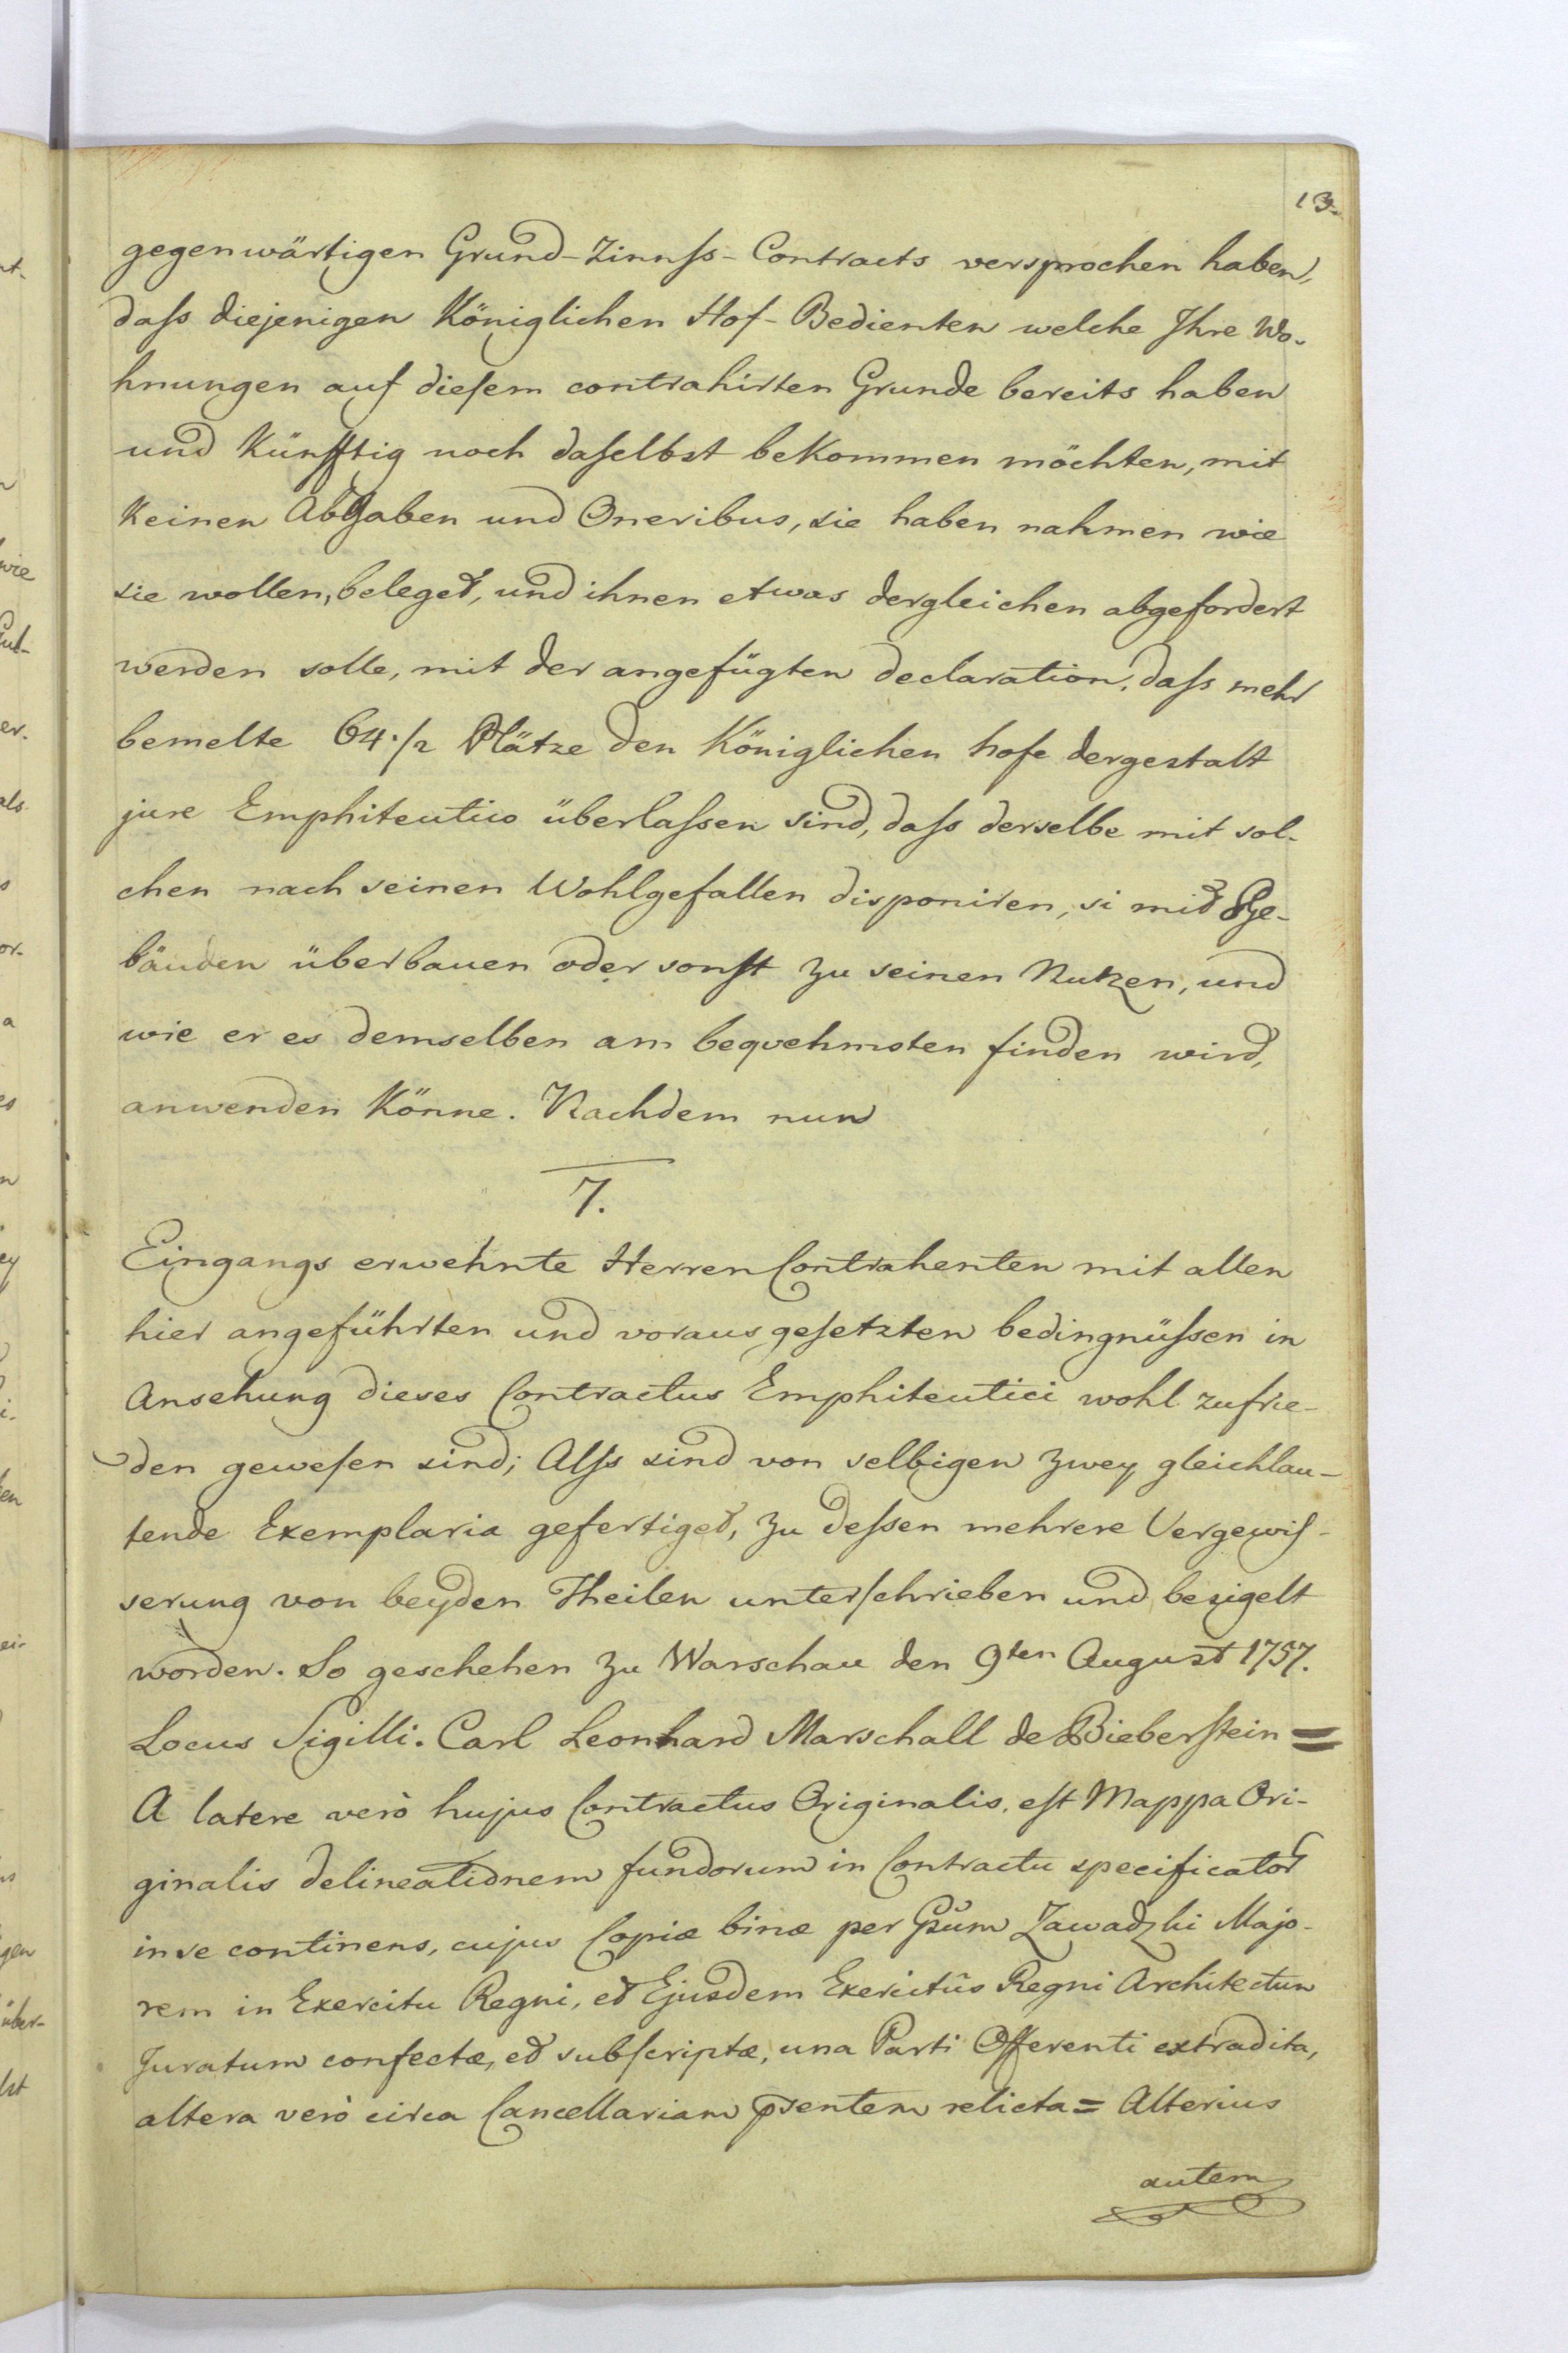 13.
gegenwärtigen Grund-Zinnſs-Contracts versprochen haben,
daſs diejenigen Königlichen Hof-Bedienten welche Ihre Wo-
hnungen auf dieſem contrahirten Grunde bereits haben
und Künfftig noch daſelbst beKommen möchten, mit
Keinen Abgaben und Oneribus, sie haben nahmen wie
sie wollen, beleget, und ihnen etwas dergleichen abgefordert
werden solle, mit der angefügten declaration, daſs mehr
bemelte 64 1/2 Plätze den Königlichen hofe dergestalt
jure Emphiteutico überlaſsen sind, daſs derselbe mit sol-
chen nach seinen Wohlgefallen disponiren, si mit Ge-
bäuden überbauen oder sonſt zu seinen Nutzen, und
wie er es demselben am beqvehmsten finden wird,
anwenden Könne. Nachdem nun
7.
Eingangs erwehnte Herren Contrahenten mit allen
hier angeführten und voraus geſetzten bedingnüſsen in
Ansehung dieses Contractus Emphiteutici wohl zufrie-
den geweſen sind; Alſs sind von selbigen zwey gleichlau-
tende Exemplaria gefertiget, zu deſsen mehrere Vergewiſ-
serung von beyden Theilen unterſchrieben und besigelt
worden. So geschehen zu Warschau den 9ten August 1757.
Locus Sigilli. Carl Leonhard Marschall de Bieberſtein =
A latere verò hujus Contractus Originalis, eſt Mappa Ori-
ginalis delineationem fundorum in Contractu specificator
in se continens, cujus Copiæ binæ per Gsum Zawadzki Majo-
rem in Exercitu Regni, et Ejusdem Exercitûs Regni Architectum
Juratum confectæ, et subſcriptæ, una Parti Offerenti extradita,
altera verò circa Cancellariam pſentem relicta = Alterius
autem